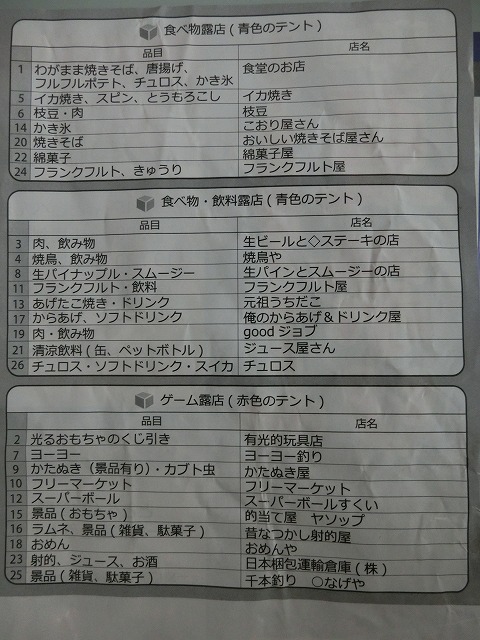 食べ物露店(青色のテント)
品目 店名
1 わがまま焼きそば、唐揚げ、 食堂のお店
フルフルポテト、チュロス、かき氷
5 イカ焼き、スピン、とうもろこし イカ焼き
6 枝豆・肉 枝豆
14 かき氷 こおり屋さん
20 焼きそば おいしい焼きそば屋さん
22 綿菓子 綿菓子屋
24 フランクフルト、きゅうり フランクフルト屋
食べ物・飲料露店(青色のテント)
品目 店名
3 肉、飲み物 生ビールと◇ステーキの店
4 焼鳥、飲み物 焼鳥や
8 生パイナップル・スムージー 生パインとスムージーの店
11 フランクフルト・飲料 フランクフルト屋
13 あげたこ焼き・ドリンク 元祖うちだこ
17 からあげ、ソフトドリンク 俺のからあげ&ドリンク屋
19 肉・飲み物 good ジョブ
21 清涼飲料(缶、ペットボトル) ジュース屋さん
26 チュロス・ソフトドリンク・スイカ チュロス
ゲーム露店(赤色のテント)
品目 店名
2 光るおもちゃのくじ引き 有光的玩具店
7 ヨーヨー ヨーヨー釣り
9 かたぬき(景品有り)・カブト虫 かたぬき屋
10 フリーマーケット フリーマーケット
12 スーパーボール スーパーボールすくい
15 景品(おもちゃ) 的当て屋 ヤソップ
16 ラムネ、景品(雑貨、駄菓子) 昔なつかし射的屋
18 おめん おめんや
23 射的、ジュース、お酒 日本梱包運輸倉庫(株)
25 景品(雑貨、駄菓子) 千本釣り ○なげや